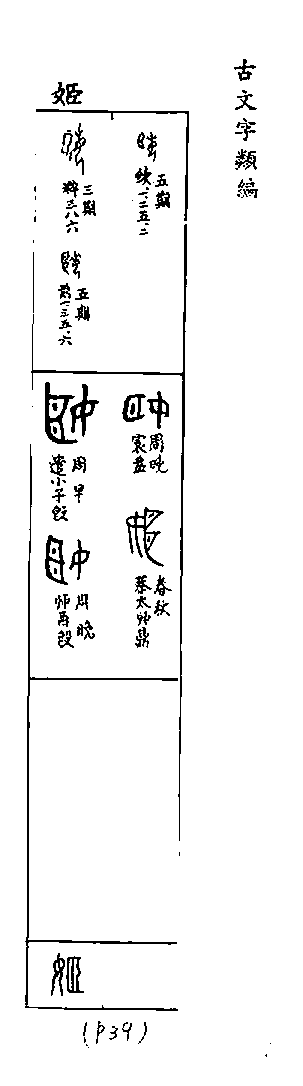 古文字類編
姬
五期
續一·二五·二
三期
粹三八六
五期
前一·三五·六
周晚
寰盤
周早
遣小子𣪘
春秋
蔡太師鼎
周晚
師酉𣪘
姬
(P39)